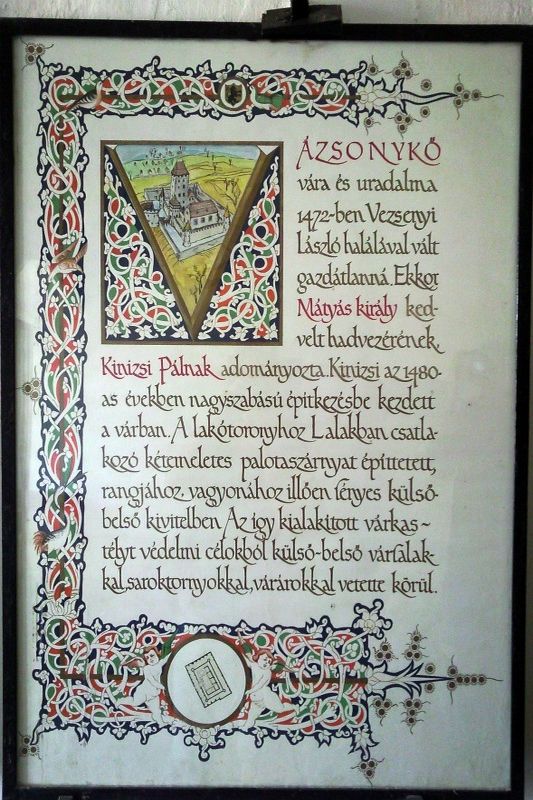 VÁZSONYKŐ
vára és uradalma
1472-ben Vezsenyi
László halálával vált
gazdátlanná. Ekkor
Mátyás király ked-
velt hadvezérének,
Kinizsi Pálnak adományozta. Kinizsi az 1480-
as években nagyszabású építkezésbe kezdett
a várban. A lakótoronyhoz L alakban csatla-
kozó kétemeletes palotaszárnyat építtetett,
rangjához, vagyonához illően fényes külső-
belső kivitelben. Az így kialakított várkas-
télyt védelmi célokból külső-belső várfalak-
kal, saroktornyokkal, várárokkal vetette körül.